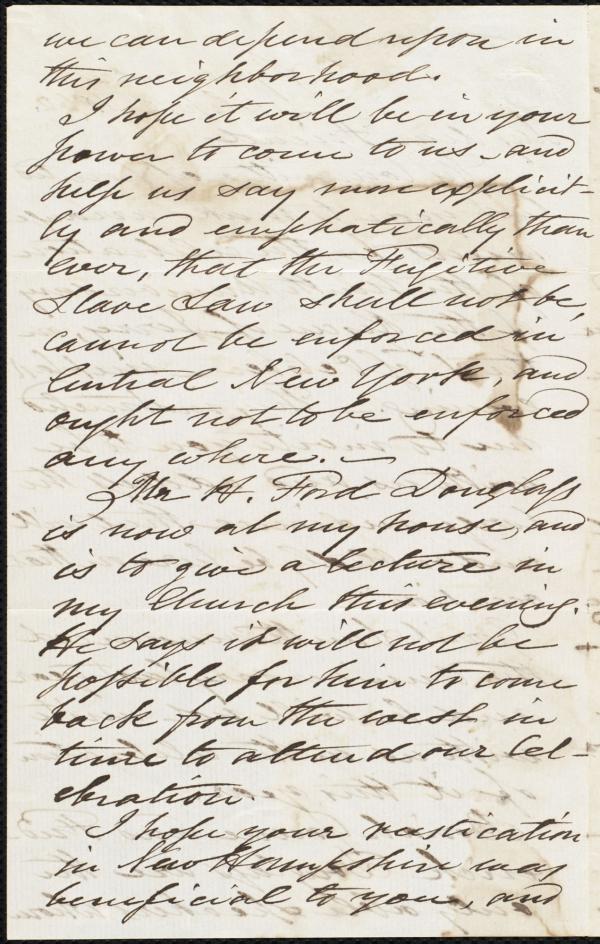 we can depend upon in
this neighborhood.
I hope it will be in your
power to come to us and
help us say more explicit-
ly and emphatically than
ever, that the Fugitive
Slave Law shall not be,
cannot be enforced in
Central New York, and
ought not to be enforced
any where. —
Mr H. Ford Douglass
is now at my house, and
is to give a lecture in
my Church this evening.
He says it will not be
possible for him to come
back from the west in
time to attend our Cel-
ebration.
I hope your rustication
in New Hampshire was
beneficial to you, and